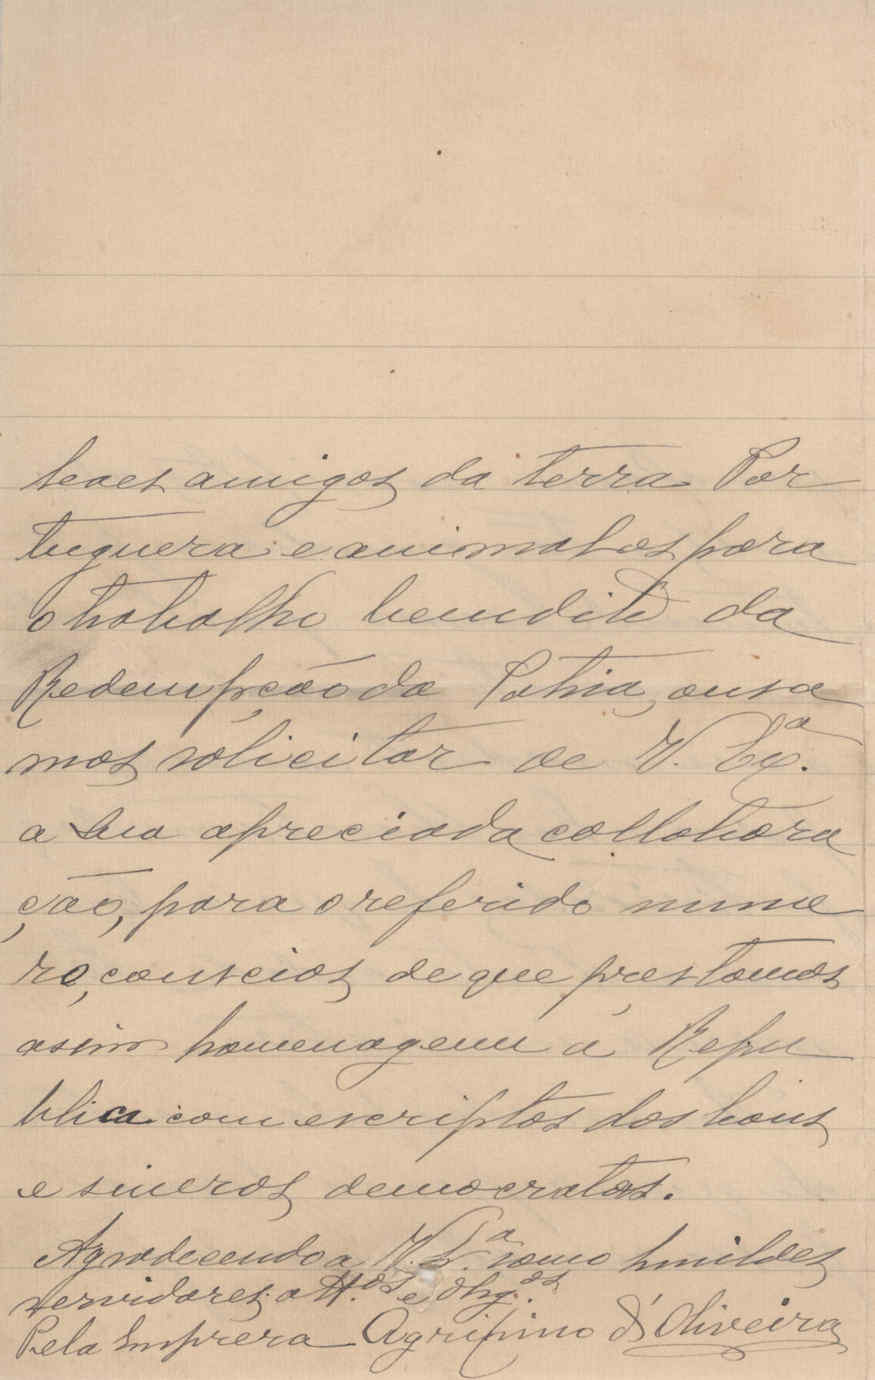 leaes amigos da terra Por
tugueza e animados para
o trabalho bemdito da
Redempção da Patria, ousa
mos solicitar de V. Exª.
a sua apreciada collabora
ção, para o referido nume
ro, conscios de que prestamos
assim homenagem á Repu
blica com escriptos dos bons
e sinceros democratas.
Agradecendo a V. Sª somos humildes
servidores attos e obrgos.
Pela Empreza Agripino d'Oliveira